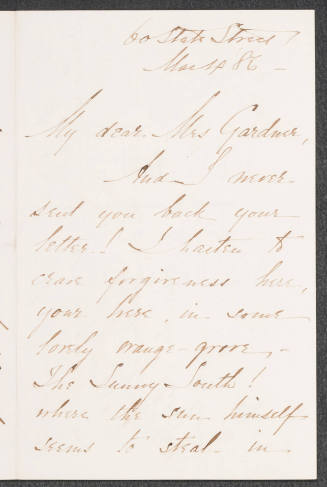 60 State Street
Mar 4 86 -
My dear Mrs Gardner,
And I never
sent you back your
letter! I hasten to
crave forgiveness here,
your here, in some
lovely orange-grove, -
The Sunny South!
where the sun himself
seems to steal in